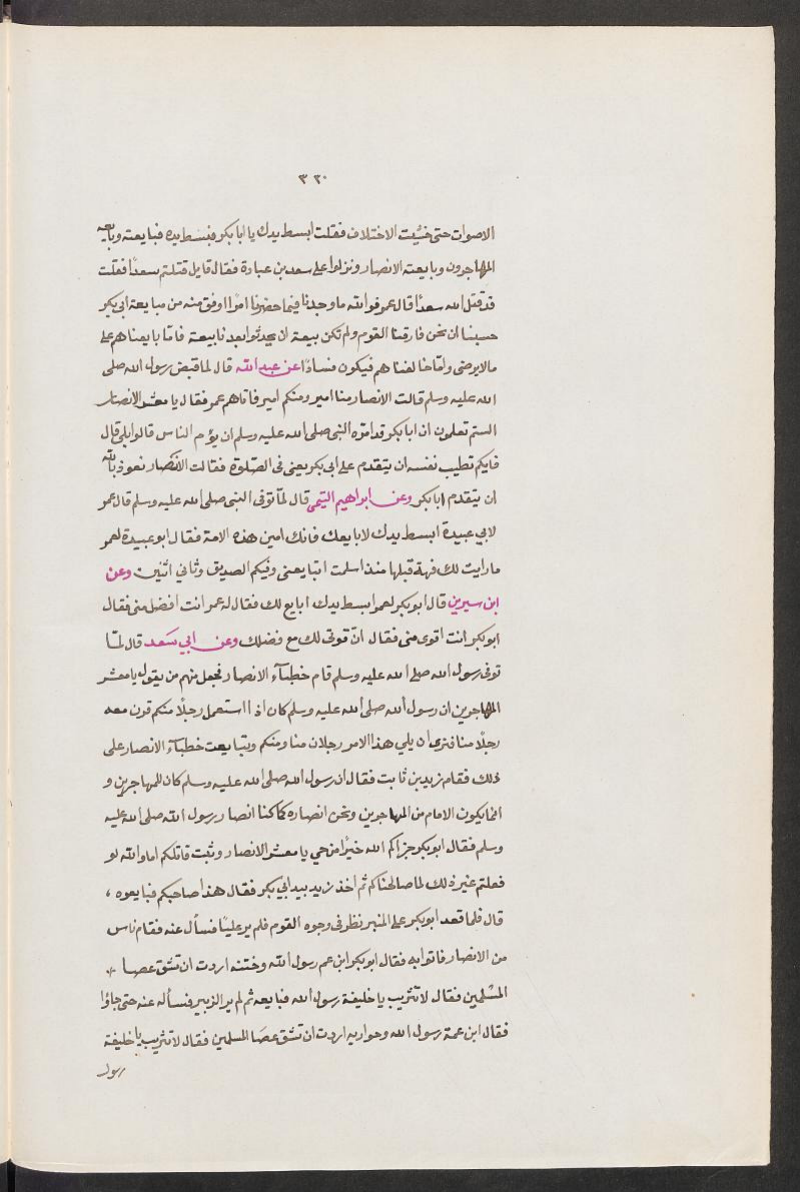 ٣٢٠
الاصوات حتى خشيت الاختلاف فقلت ابسط يدك يا ابا بكر فبسط يده فبايعته وبايعه
المهاجرون وبايعته الانصار ونزلوا على سعد بن عبادة فقال قايل قتلتم سعدًا فقلت
قد قتل الله سعدًا قال عمر فوالله ما وجدنا فيما حضرنا امرًا اوفق منه من مبايعة ابى بكر
حسبنا ان نحن فارقنا القوم ولم تكن بيعة ان يحدثوا بعدنا بيعة فامّا بايعناهم على
مالا يرضى وامّا خالفناهم فيكون فسادًا عن عبد الله قال لما قبض رسول الله صلى
الله عليه وسلم قالت الانصار منا امير ومنكم امير فاتاهم عمر فقال يا معشر الانصار
الستم تعلمون ان ابا بكر قد امره النبى صلى الله عليه وسلم ان يؤم الناس قالوا بلى قال
فايكم تطيب نفسه ان يتقدم على ابى بكر يعنى فى الصّلوة فقالت الانصار نعوذ بالله
ان يتقدم ابا بكر وعن ابراهيم التيمى قال لمّا توفى النبى صلى الله عليه وسلم قال عمر
لابى عبيدة ابسط يدك لابايعك فانك امين هذه الامة فقال ابو عبيدة لعمر
ما رايت لك فهة قبلها منذ اسلمت اتبايعنى وفيكم الصديق وثانى اثنين وعن
ابن سيرين قال ابو بكر لعمر ابسط يدك ابايع لك فقال له عمر انت افضل منى فقال
ابو بكر انت اقوى منى فقال انّ قوتى لك مع فضلك وعن ابى سعد قال لمّا
توفى رسول الله صلى الله عليه وسلم قام خطبآء الانصار فجعل منهم من يقول يا معشر
المهاجرين ان رسول الله صلى الله عليه وسلم كان اذا استعمل رجلًا منكم قرن معه
رجلًا منا فنرى ان يلي هذا الامر رجلان منا ومنكم وتبايعت خطبآء الانصار على
ذلك فقام زيد بن ثابت فقال ان رسول الله صلى الله عليه وسلم كان للمهاجرين و
انما يكون الامام من المهاجرين ونحن انصاره كما كنا انصار رسول الله صلى الله عليه
وسلم فقال ابو بكر جزاكم الله خيرًا من حي يا معشر الانصار وثبت قائلكم اما والله لو
فعلتم غير ذلك لما صالحناكم ثم اخذ زيد بيد ابى بكر فقال هذا صاحبكم فبايعوه ،
قال فلما قعد ابو بكر على المنبر نظر فى وجوه القوم فلم ير عليًا فسأل عنه فقام ناس
من الانصار فاتوا به فقال ابو بكر ابن عم رسول الله وختنه اردت ان تشق عصا
المسلمين فقال لا تثريب يا خليفة رسول الله فبايعه ثم لم ير الزبير فسأله عنه حتى جاؤا
فقال ابن عمة رسول الله وحواريه اردت ان تشق عصا المسلمين فقال لا تثريب يا خليفة
رسول